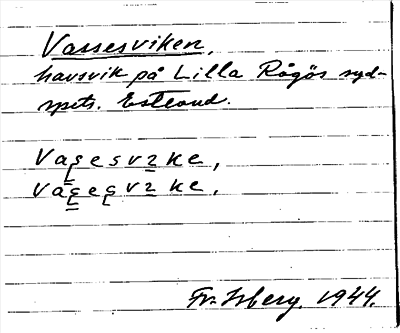 Vassesviken,
havsvik på Lilla Rågös syd-
spets. Estland.
Vaʂesvɪke,
Vaʂeʂvɪke.
Fr. Isberg. 1944.